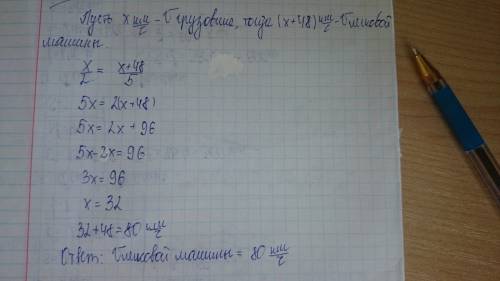 Пусть x км/ч - V грузовика, тогда (x+48) км/ч - V легковой
машины.
x/2 = x+48/5
5x = 2(x+48)
5x = 2x + 96
5x-2x = 96
3x = 96
x = 32
32+48=80 км/ч
Ответ: V легковой машины = 80 км/ч